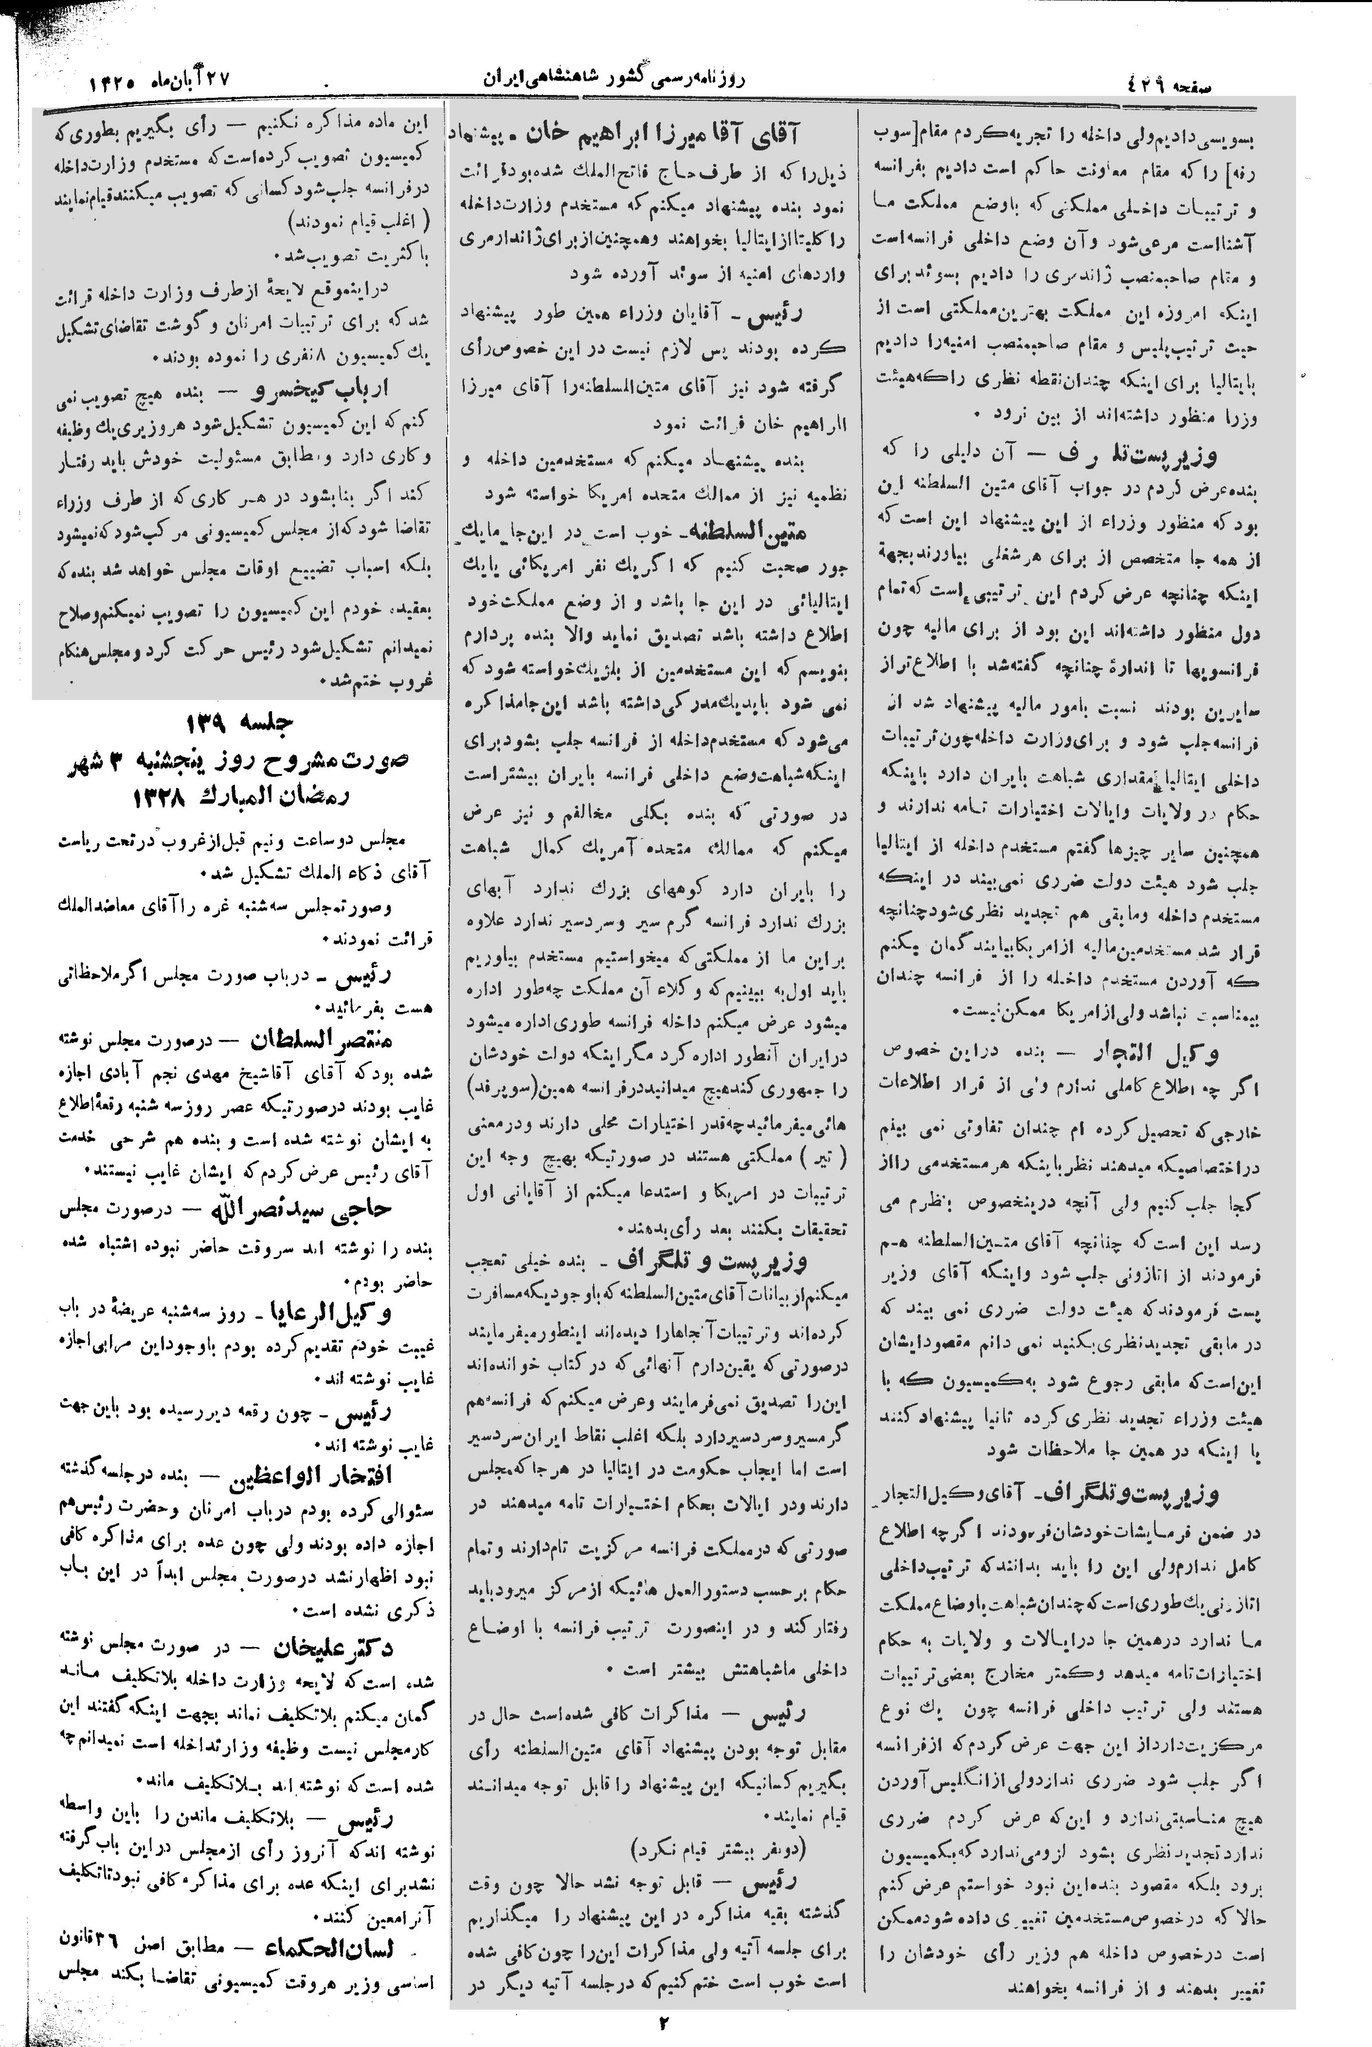 صفحه ٤٢٩
روزنامه رسمی کشور شاهنشاهی ایران
٢٧ آبان ماه ١٣٢٥
بسویسی دادیم ولی داخله را تجریه کردم مقام [سوب
رفه] را که مقام معاونت حاکم است دادیم بفرانسه
و ترتیبات داخلی مملکتی که باوضع مملکت ما
آشنااست مرعی شود و آن وضع داخلی فرانسه است
و مقام صاحبمنصب ژاندمری را دادیم بسوئد برای
اینکه امروزه این مملکت بهترین مملکتی است از
حیث ترتیب پلیس و مقام صاحبمنصب امنیه را دادیم
بایتالیا برای اینکه چندان نقطه نظری را که هیئت
وزرا منظور داشته‌اند از بین نرود ٠
وزیر پست تلـ رف — آن دلیلی را که
بنده عرض کردم در جواب آقای متین السلطنه این
بود که منظور وزراء از این پیشنهاد این است که
از همه جا متخصص از برای هر شغلی بیاورند بجهة
اینکه چنانچه عرض کردم این ترتیبی است که تمام
دول منظور داشته‌اند این بود از برای مالیه چون
فرانسویها تا اندازهٔ چنانچه گفته شد با اطلاع تر از
سایرین بودند نسبت بامور مالیه پیشنهاد شد از
فرانسه جلب شود و برای وزارت داخله چون ترتیبات
داخلی ایتالیا مقداری شباهت بایران دارد باینکه
حکام در ولایات وایالات اختیارات تامه ندارند و
همچنین سایر چیزها گفتم مستخدم داخله از ایتالیا
جلب شود هیئت دولت ضرری نمی‌بیند در اینکه
مستخدم داخله ومابقی هم تجدید نظری شود چنانچه
قرار شد مستخدمین مالیه از امریکا بیایند گمان میکنم
که آوردن مستخدم داخله را از فرانسه چندان
بیمناسبت نباشد ولی از امریکا ممکن نیست٠
وکیل التجار — بنده دراین خصوص
اگر چه اطلاع کاملی ندارم ولی از قرار اطلاعات
خارجی که تحصیل کرده ام چندان تفاوتی نمی بینم
در اختصاصیکه میدهند نظر باینکه هر مستخدمی را از
کجا جلب کنیم ولی آنچه در ینخصوص بنظرم می
رسد این است که چنانچه آقای متـین السلطنه هـم
فرمودند از اتازونی جلب شود واینکه آقای وزیر
پست فرمودند که هیئت دولت ضرری نمی بیند که
در مابقی تجدید نظری بکنید نمی دانم مقصود ایشان
این است که مابقی رجوع شود به کمیسیون که با
هیئت وزراء تجدید نظری کرده ثانیا پیشنهاد کنند
یا اینکه در همین جا ملاحظات شود
وزیر پست و تلگراف ـ آقای وکیل التجار
در ضمن فرمایشات خودشان فرمودند اگر چه اطلاع
کامل ندارم ولی این را باید بدانند که ترتیب داخلی
اتازونی یك طوری است که چندان شباهت باوضاع مملکت
ما ندارد درهمین جا درایالات و ولایات به حکام
اختیارات تامه میدهد وکمتر مخارج بعضی ترتیبات
هستند ولی ترتیب داخلی فرانسه چون یك نوع
مرکزیت دارد از این جهت عرض کردم که از فرانسه
اگر جلب شود ضرری ندارد ولی از انگلیس آوردن
هیچ مناسبتی ندارد و این که عرض کردم ضرری
ندارد تجدید نظری بشود لزومی ندارد که بکمیسیون
برود بلکه مقصود بنده این نبود خواستم عرض کنم
حالا که در خصوص مستخدمین تغییری داده شود ممکن
است درخصوص داخله هم وزیر رأی خودشان را
تغییر بدهند و از فرانسه بخواهند
آقای آقا میرزا ابراهیم خان ـ پیشنهاد
ذیل را که از طرف حاج فاتح الملك شده بود قرائت
نمود بنده پیشنهاد میکنم که مستخدم وزارت داخله
را کلیتا از ایتالیا بخواهند وهمچنین از برای ژاندارمری
واردهای امنیه از سوئد آورده شود
رئیس ـ آقایان وزراء همین طور پیشنهاد
کرده بودند پس لازم نیست در این خصوص رأی
گرفته شود نیز آقای متین السلطنه را آقای میرزا
ابراهیم خان قرائت نمود
بنده پیشنهاد میکنم که مستخدمین داخله و
نظمیه نیز از ممالك متحده امریکا خواسته شود
متین السلطنه ـ خوب است در این جا ما یك
جور صحبت کنیم که اگر یك نفر امریکائی یا یك
ایتالیائی در این جا باشد و از وضع مملکت خود
اطلاع داشته باشد تصدیق نماید والا بنده بردارم
بنویسم که این مستخدمین از بلژیك خواسته شود که
نمی شود باید یك مدرکی داشته باشد این جا مذاکره
می شود که مستخدم داخله از فرانسه جلب بشود برای
اینکه شباهت وضع داخلی فرانسه بایران بیشتر است
در صورتی که بنده بکلی مخالفم و نیز عرض
میکنم که ممالك متحده آمریك کمال شباهت
را بایران دارد کوههای بزرك ندارد آبهای
بزرك ندارد فرانسه گرم سیر و سردسیر ندارد علاوه
براین ما از مملکتی که میخواستیم مستخدم بیاوریم
باید اول به بینیم که وکلاء آن مملکت چه طور اداره
میشود عرض میکنم داخله فرانسه طوری اداره میشود
درایران آنطور اداره کرد مگر اینکه دولت خودشان
را جمهوری کند هیچ میدانید در فرانسه همین (سوپرفد)
هائی میفرمائید چه قدر اختیارات محلی دارند و درمعنی
(تیر) مملکتی هستند در صورتیکه بهیچ وجه این
ترتیبات در امریکا و استدعا میکنم از آقایانی اول
تحقیقات بکنند بعد رأی بدهند٠
وزیر پست و تلگراف ـ بنده خیلی تعجب
میکنم از بیانات آقای متین السلطنه که باوجودیکه مسافرت
کرده‌اند و ترتیبات آنجاها را دیده‌اند اینطور میفرمایند
درصورتی که یقین دارم آنهائی که در کتاب خوانده‌اند
این را تصدیق نمی فرمایند و عرض میکنم که فرانسه هم
گرمسیر و سردسیر دارد بلکه اغلب نقاط ایران سردسیر
است اما ایجاب حکومت در ایتالیا در هر جا که مجلس
دارند ودر ایالات بحکام اختـیارات تامه میدهند در
صورتی که در مملکت فرانسه مرکزیت تام دارند و تمام
حکام بر حسب دستور العمل هائیکه از مرکز میرود باید
رفتار کند و در اینصورت ترتیب فرانسه با اوضاع
داخلی ما شباهتش بیشتر است ٠
رئیس — مذاکرات کافی شده است حال در
مقابل توجه بودن پیشنهاد آقای متین السلطنه رأی
بگیریم کسانیکه این پیشنهاد را قابل توجه میدانـند
قیام نمایند٠
(دونفر بیشتر قیام نکرد)
رئیس — قابل توجه نشد حالا چون وقت
گذشته بقیه مذاکره در این پیشنهاد را میگذاریم
برای جلسه آتیه ولی مذاکرات این را چون کافی شده
است خوب است ختم کنیم که در جلسه آتیه دیگر در
این ماده مذاکره نکنیم — رأی بگیریم بطوری که
کمیسیون تصویب کرده است که مستخدم وزارت داخله
در فرانسه جلب شود کسانی که تصویب میکنند قیام نمایند
(اغلب قیام نمودند)
باکثریت تصویب شد٠
در اینموقع لایحهٔ از طرف وزارت داخله قرائت
شد که برای ترتیبات امرنان و گوشت تقاضای تشکیل
یك کمیسیون ٨ نفری را نموده بودند٠
ارباب کیخسرو — بنده هیچ تصویب نمی
کنم که این کمیسیون تشکیل شود هر وزیری یك وظیفه
وکاری دارد و مطابق مسئولیت خودش باید رفتـار
کند اگر بنا بشود در هـر کاری که از طرف وزراء
تقاضا شود که از مجلس کمیسیونی مرکب شود که نمیشود
بلکه اسباب تضییع اوقات مجلس خواهد شد بنده که
بعقیده خودم این کمیسیون را تصویب نمیکنم و صلاح
نمیدانم تشکیل شود رئیس حرکت کرد و مجلس هنگام
غروب ختم شد٠
جلسه ١٣٩
صورت مشروح روز پنجشنبه ٣ شهر
رمضان المبارك ١٣٢٨
مجلس دو ساعت ونیم قبل از غروب درتحت ریاست
آقای ذکاء الملك تشکیل شد٠
وصورتمجلس سه شنبه غره را آقای معاضد الملك
قرائت نمودند٠
رئیس ـ درباب صورت مجلس اگر ملاحظاتی
هست بفرمائید٠
منتصر السلطان — درصورت مجلس نوشته
شده بود که آقای آقا شیخ مهدی نجم آبادی اجازه
غایب بودند درصورتیکه عصر روز سه شنبه رقعهٔ اطلاع
به ایشان نوشته شده است و بنده هم شرحی خدمت
آقای رئیس عرض کردم که ایشان غایب نیستند٠
حاجی سید نصر الله — درصورت مجلس
بنده را نوشته اند سروقت حاضر نبوده اشتباه شده
حاضر بودم٠
وکیل الرعایا ـ روز سه شنبه عریضهٔ در باب
غیبت خودم تقدیم کرده بودم باوجود این مرا بی اجازه
غایب نوشته اند٠
رئیس ـ چون رقعه دیر رسیده بود باین جهت
غایب نوشته اند٠
افتخار الواعظین — بنده در جلسه گذشته
سئوالی کرده بودم درباب امرنان وحضرت رئیس هم
اجازه داده بودند ولی چون عده برای مذاکره کافی
نبود اظهار نشد درصورت مجلس ابداً در این بـاب
ذکری نشده است٠
دکتر علیخان — در صورت مجلس نوشته
شده است که لایحه وزارت داخله بلاتکلیف مانـد
گمان میکنم بلاتکلیف نماند بجهت اینکه گفتند این
کار مجلس نیست وظیفه وزارتداخله است نمیدانم چه
شده است که نوشته اند بـلاتکلیف ماند٠
رئیس — بلاتکلیف ماندن را باین واسطه
نوشته اند که آنروز رأی از مجلس در این باب گرفته
نشد برای اینکه عده برای مذاکره کافی نبود تاتکلیف
آنرا معین کنند٠
لسان الحکماء — مطابق اصل ٣٦ قانون
اساسی وزیر هر وقت کمیسیونی تقاضا بکند مجلس
٢